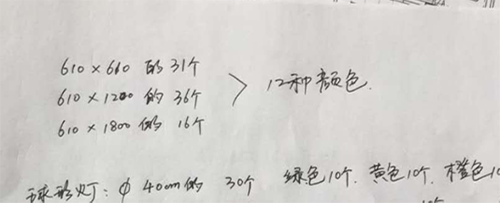 610×610 的 31个
610×1200 的 36个 > 12种颜色.
610×1800 的 16个
球形灯: φ 40cm的 30个 绿色10个. 黄色10个. 橙色10